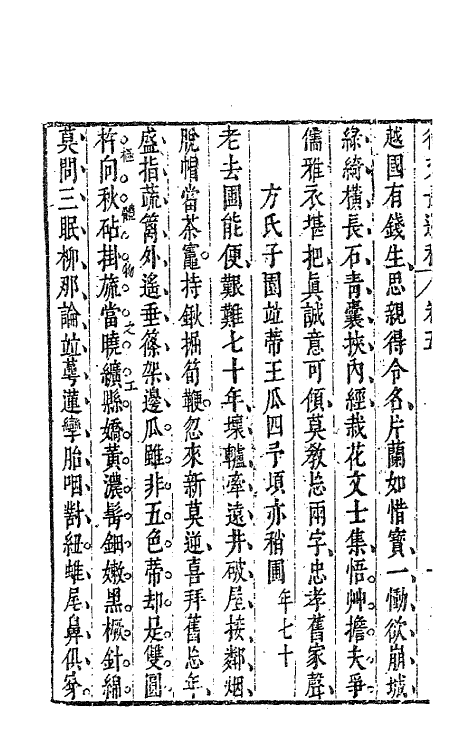 卷五
越國有錢生思親得令名片蘭如惜寶一慟欲崩城
綠綺橫長石青囊挾內經栽花文士集悟艸擔夫爭
儒雅衣堪把眞誠意可傾莫敎忘兩字忠孝舊家聲
方氏子園竝蒂王瓜四子項亦稍圃年七十
老去圃能便艱難七十年壞轤牽遠井破屋接鄰烟
脫帽當茶竈持鍬掘筍鞭忽來新莫逆喜拜舊忘年
盛指蔬籬外遙垂篠架邊瓜雖非五色蒂却是雙圓
杵向秋砧掛旒當曉纊縣嬌黃濃髩鈿嫩黑橛針綿
極體物之工
莫問三眠柳那論竝萼蓮孿胎咽對紐蜼尾鼻俱穿